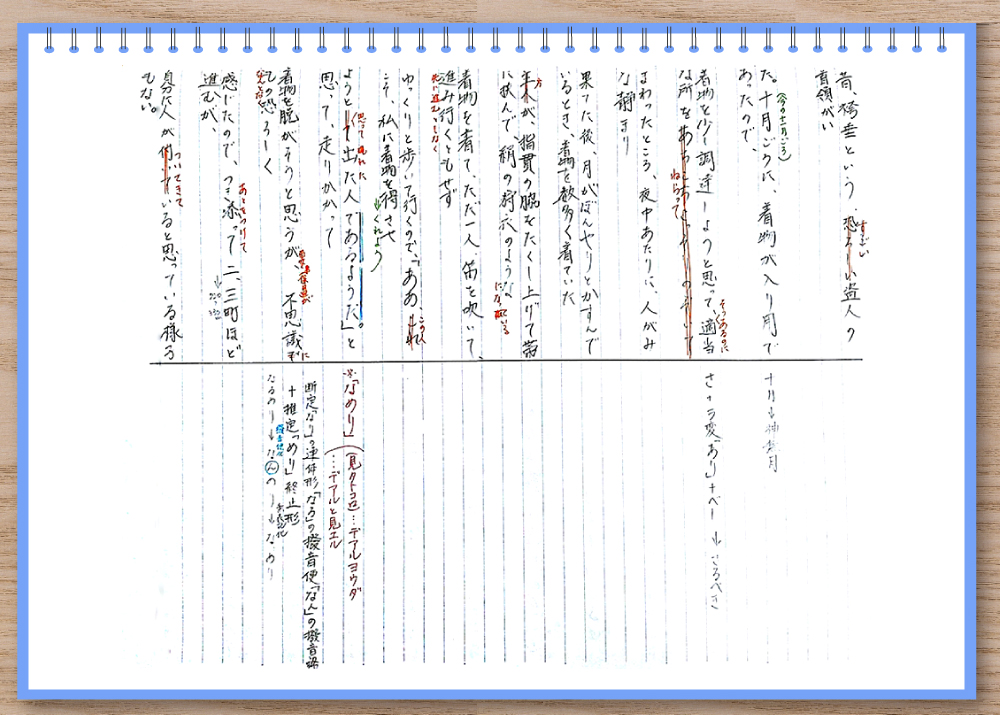 昔、袴垂という、恐ろしい盗人の
すごい
首領がい
た。十月ごろに、着物が入り用で
(今の十一月ごろ)
あったので、
着物を少し調達しようと思って、適当
そうあるのに
な所をあちこち
ねらって
まわったところ、夜中あたりに、人がみ
な静まり
果てた後、月がぼんやりとかすんで
いるとき、着物を数多く着ていた
人が、指貫の脇をたくし上げて帯
方
に挟んで、絹の狩衣のような
着物を着て、ただ一人、笛を吹いて、
進み行くともせず
ゆっくりと歩いて行くので、「ああ、
こそ、私に着物を得させ
↓くれよう
ようとして出た人であるようだ」と
思って 現れた
思って、走りかかって
着物を脱がそうと思うが、不思議に
ものの恐ろしく
感じたので、つき添って二、三町ほど
あとをつけて
進むが、
自分に人が付いていると思っている様子
ついてきて
もない。
十月→神無月
さ+ラ変「あり」+べし→さるべき
※「なめり」
(見タトコロ…デアルヨウダ
…デアルと見エル
断定「なり」の連体形「なる」の撥音便「なん」の撥音無
+推定「めり」終止形
なるめり→なんめり→なめり